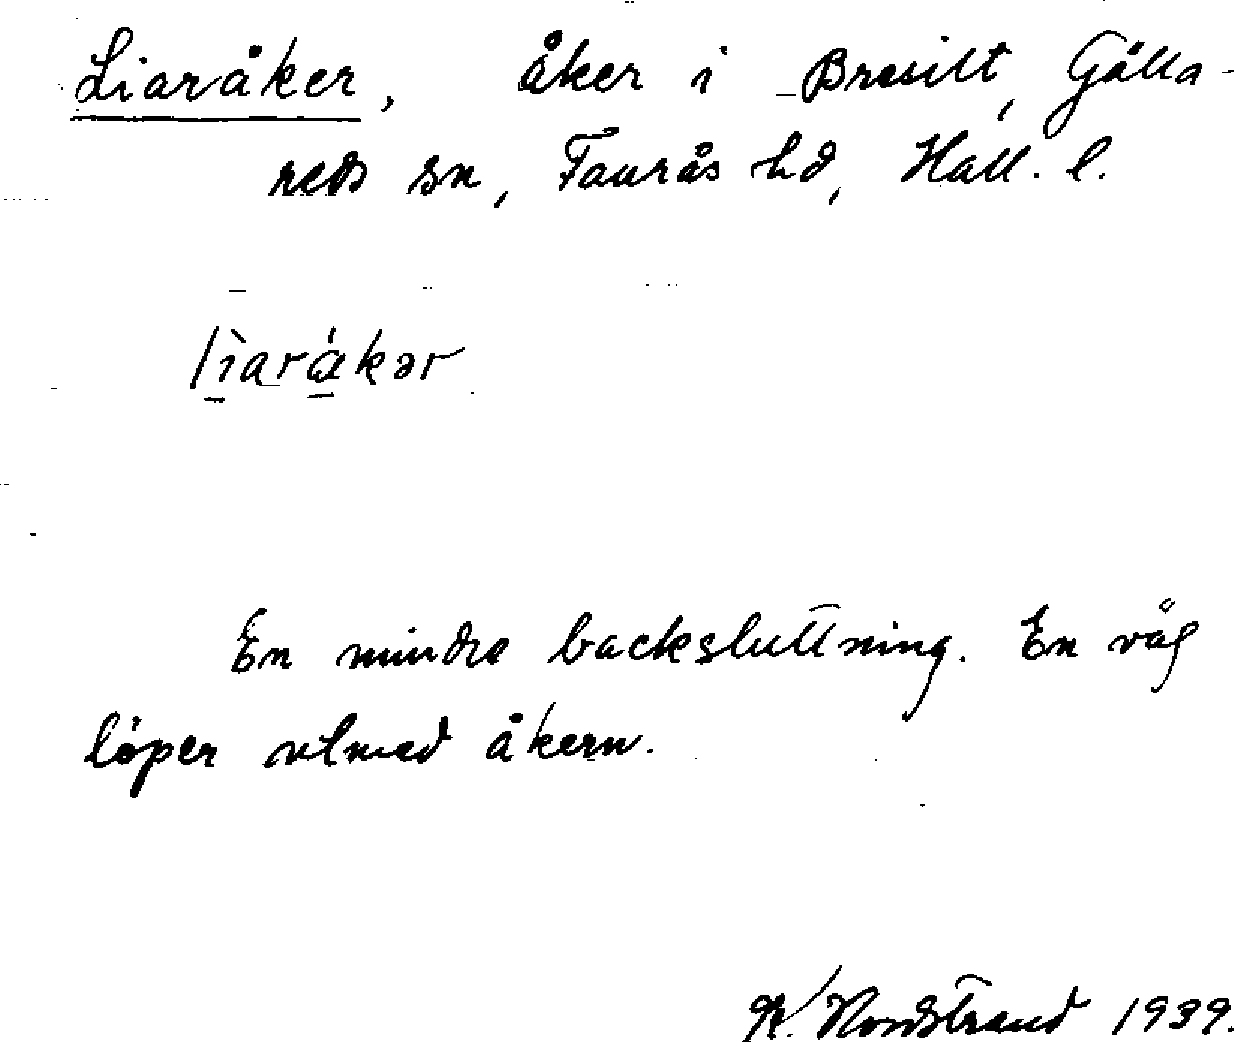 Liaråker, åker i Bresilt, Gälla-
reds sn, Faurås hd, Hall. l.
lìaràkər
En mindre backsluttning. En väg
löper utmed åkern.
Nordstrand 1939.